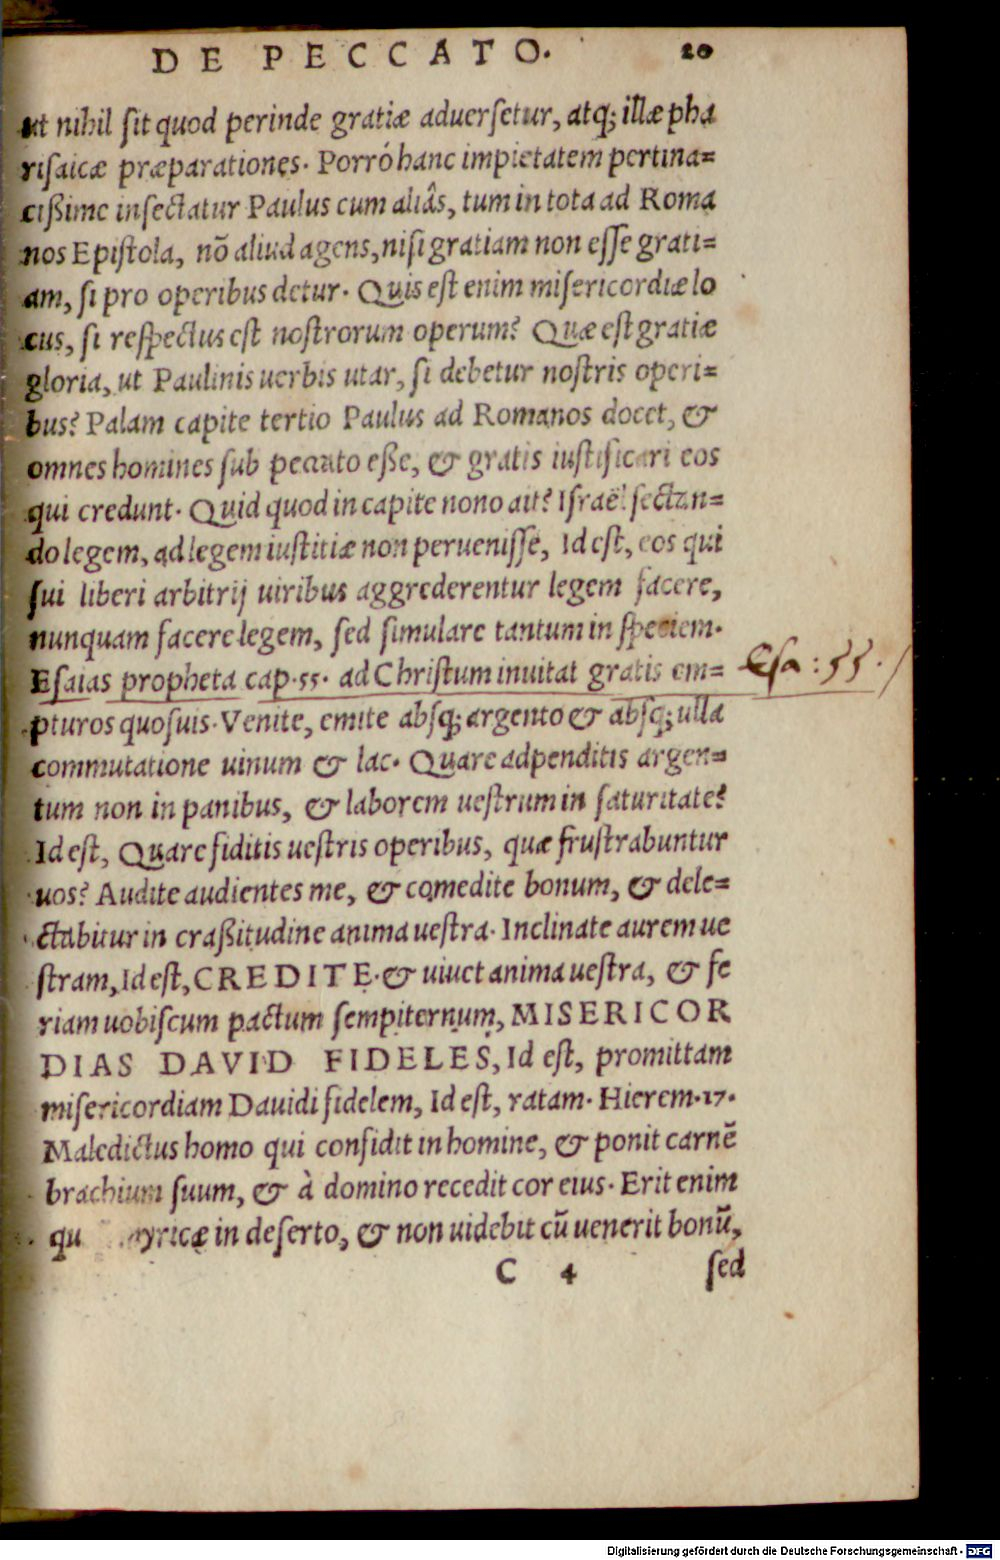 DE PECCATO. 20
ut nihil ſit quod perinde gratiæ aduerſetur, atq; illæ pha
riſaicæ præparationes. Porró hanc impietatem pertina=
cißime inſectatur Paulus cum aliâs, tum in tota ad Roma
nos Epiſtola, nõ aliud agens, niſi gratiam non eſſe grati=
am, ſi pro operibus detur. Quis eſt enim miſericordiæ lo
cus, ſi reſpectus eſt noſtrorum operum? Quæ eſt gratiæ
gloria, ut Paulinis uerbis utar, ſi debetur noſtris operi=
bus? Palam capite tertio Paulus ad Romanos docet, &
omnes homines ſub peccato eße, & gratis iuſtificari eos
qui credunt. Quid quod in capite nono ait? Iſraël ſectan=
do legem, ad legem iuſtitiæ non perueniſſe, Id eſt, eos qui
ſui liberi arbitrij uiribus aggrederentur legem facere,
nunquam facere legem, ſed ſimulare tantum in ſpeciem.
Eſaias propheta cap.55. ad Chriſtum inuitat gratis em= Eſa : 55.
pturos quoſuis. Venite, emite abſq; argento & abſq; ulla
commutatione uinum & lac. Quare adpenditis argen=
tum non in panibus, & laborem ueſtrum in ſaturitate?
Id eſt, Quare fiditis ueſtris operibus, quæ fruſtrabuntur
uos? Audite audientes me, & comedite bonum, & dele=
ctabitur in craßitudine anima ueſtra. Inclinate aurem ue
ſtram, Id eſt, CREDITE. & uiuet anima ueſtra, & fe
riam uobiſcum pactum ſempiternum, MISERICOR
DIAS DAVID FIDELES, Id eſt, promittam
miſericordiam Dauidi fidelem, Id eſt, ratam. Hierem.17.
Maledictus homo qui confidit in homine, & ponit carnẽ
brachium ſuum, & à domino recedit cor eius. Erit enim
qu yricæ in deſerto, & non uidebit cũ uenerit bonũ,
C 4 ſed
Digitalisierung gefördert durch die Deutsche Forschungsgemeinschaft - DFG